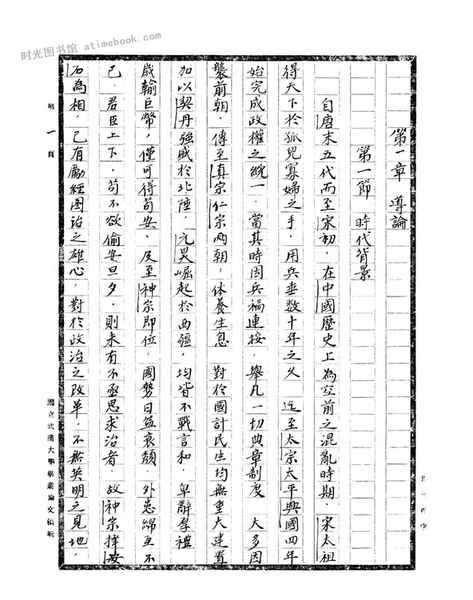 时光图书馆 atimebook.com
第一章 導論
第一節 時代背景
自唐末五代而至宋初,在中國歷史上為空前之混亂時期,宋太祖
得天下於孤兒寡婦之手,用兵垂數十年之久 迄至太宗太平興國四年
始完成政權之統一,當其時因兵禍連接,舉凡一切典章制度 大多因
襲前朝,傳至真宗仁宗兩朝,休養生息 對於國計民生均無重大建置
加以契丹強盛於北陸,元昊崛起於西疆,均皆不戰言和,卑辭厚禮
歲輸巨幣,僅可得苟安,及至神宗即位,國勢日益衰頹 外患綿亙不
已,君臣上下,苟不欲偷安旦夕,則未有不亟思求治者 故神宗擇安
石為相,已有勵經圖治之雄心,對於政治之改革,不無英明之見地,
一 頁
國立武漢大學畢業論文稿紙